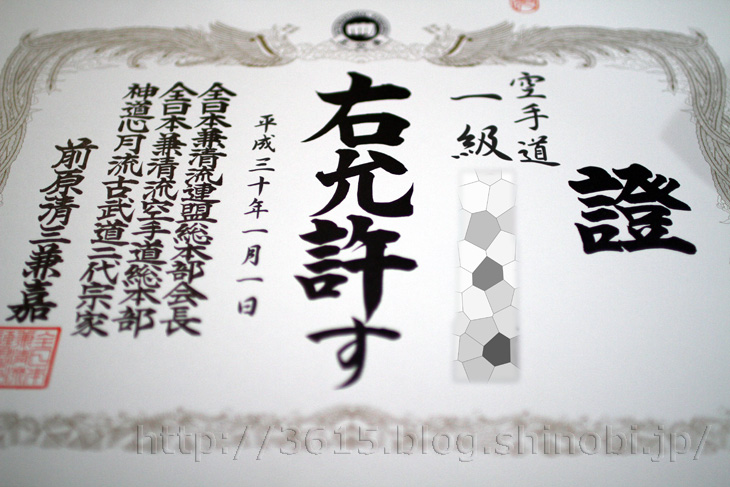 證
空手道
一級
右允許す
平成三十年一月一日
全日本兼清流連盟総本部会長
全日本兼清流空手道総本部
神道心月流古武道二代宗家
前原清三兼嘉
http://3615.blog.shinobi.jp/